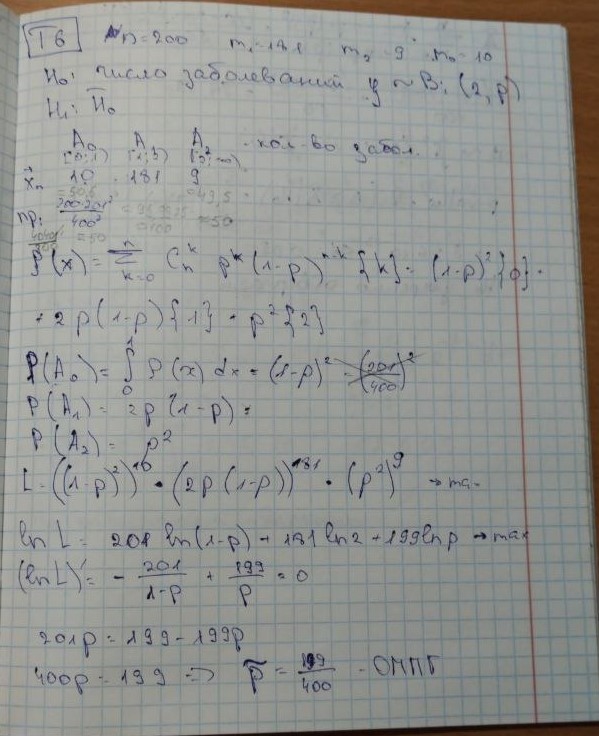 T6 n=200 m₁=181 m₂=9 m₀=10
H₀: число заболеваний y ~ Bi (2, p)
H₁: H̄₀
A₀ A₁ A₂ - кол-во забол.
[0;1) [1;2) [2;∞)
x⃗ₙ 10 181 9
=50,5 =49,5
np: 200·201²/400² =50
P(x) = Σ k=0 n Cₙᵏ pᵏ (1-p)ⁿ⁻ᵏ {k} = (1-p)² {0} +
+ 2p(1-p) {1} + p² {2}
P(A₀) = ∫₀¹ P(x) dx = (1-p)² = (201/400)²
P(A₁) = 2p (1-p) =
P(A₂) = p²
L = ((1-p)²)¹⁰ · (2p (1-p))¹⁸¹ · (p²)⁹ → max
ln L = 201 ln(1-p) + 181 ln2 + 199 ln p → max
(ln L)' = - 201/1-p + 199/p = 0
201p = 199 - 199p
400p = 199 => p̃ = 199/400 - ОМПГ